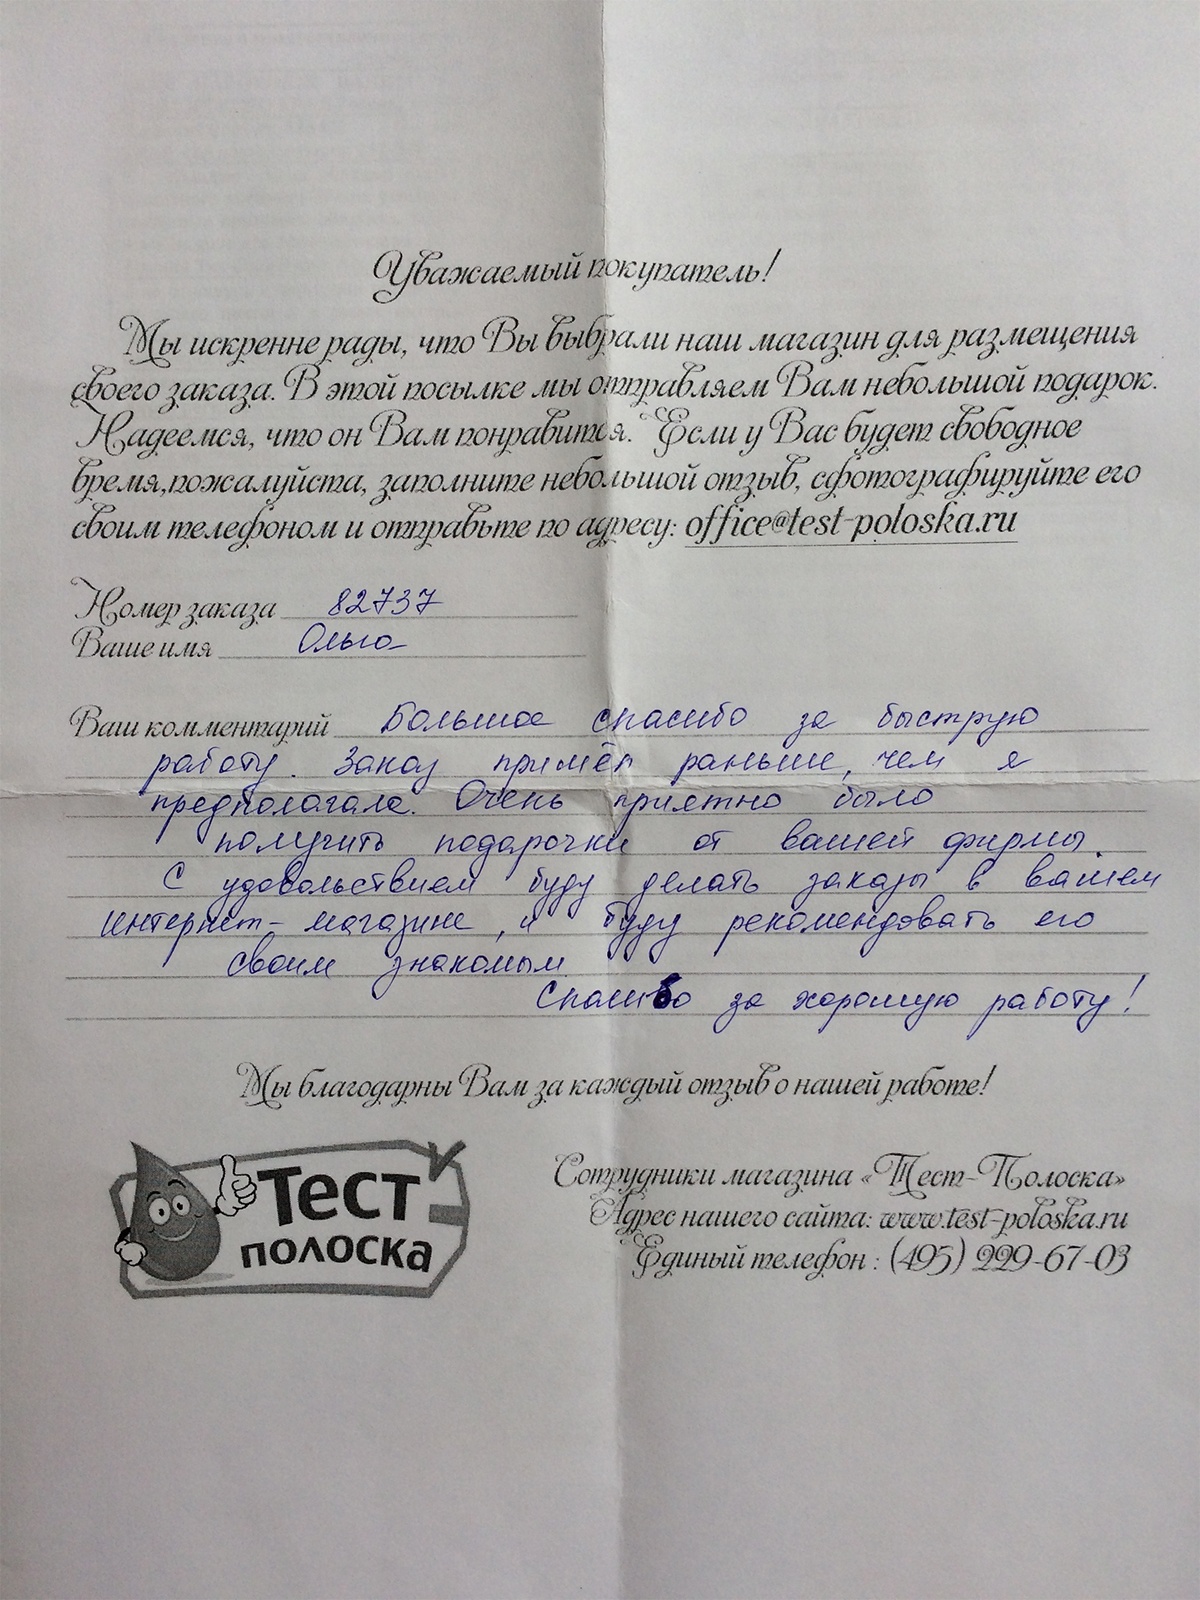 Уважаемый покупатель!
Мы искренне рады, что Вы выбрали наш магазин для размещения
своего заказа. В этой посылке мы отправляем Вам небольшой подарок.
Надеемся, что он Вам понравится. Если у Вас будет свободное
время,пожалуйста, заполните небольшой отзыв, сфотографируйте его
своим телефоном и отправьте по адресу: office@test-poloska.ru
Номер заказа 82737
Ваше имя Ольга
Ваш комментарий Большое спасибо за быструю
работу. Заказ пришёл раньше, чем я
предполагала. Очень приятно было
получить подарочки от вашей фирмы.
С удовольствием буду делать заказы в вашем
интернет-магазине, и буду рекомендовать его
своим знакомым.
Спасибо за хорошую работу!
Мы благодарны Вам за каждый отзыв о нашей работе!
Тест
полоска
Сотрудники магазина «Тест-Полоска»
Адрес нашего сайта: www.test-poloska.ru
Единый телефон : (495) 229-67-03